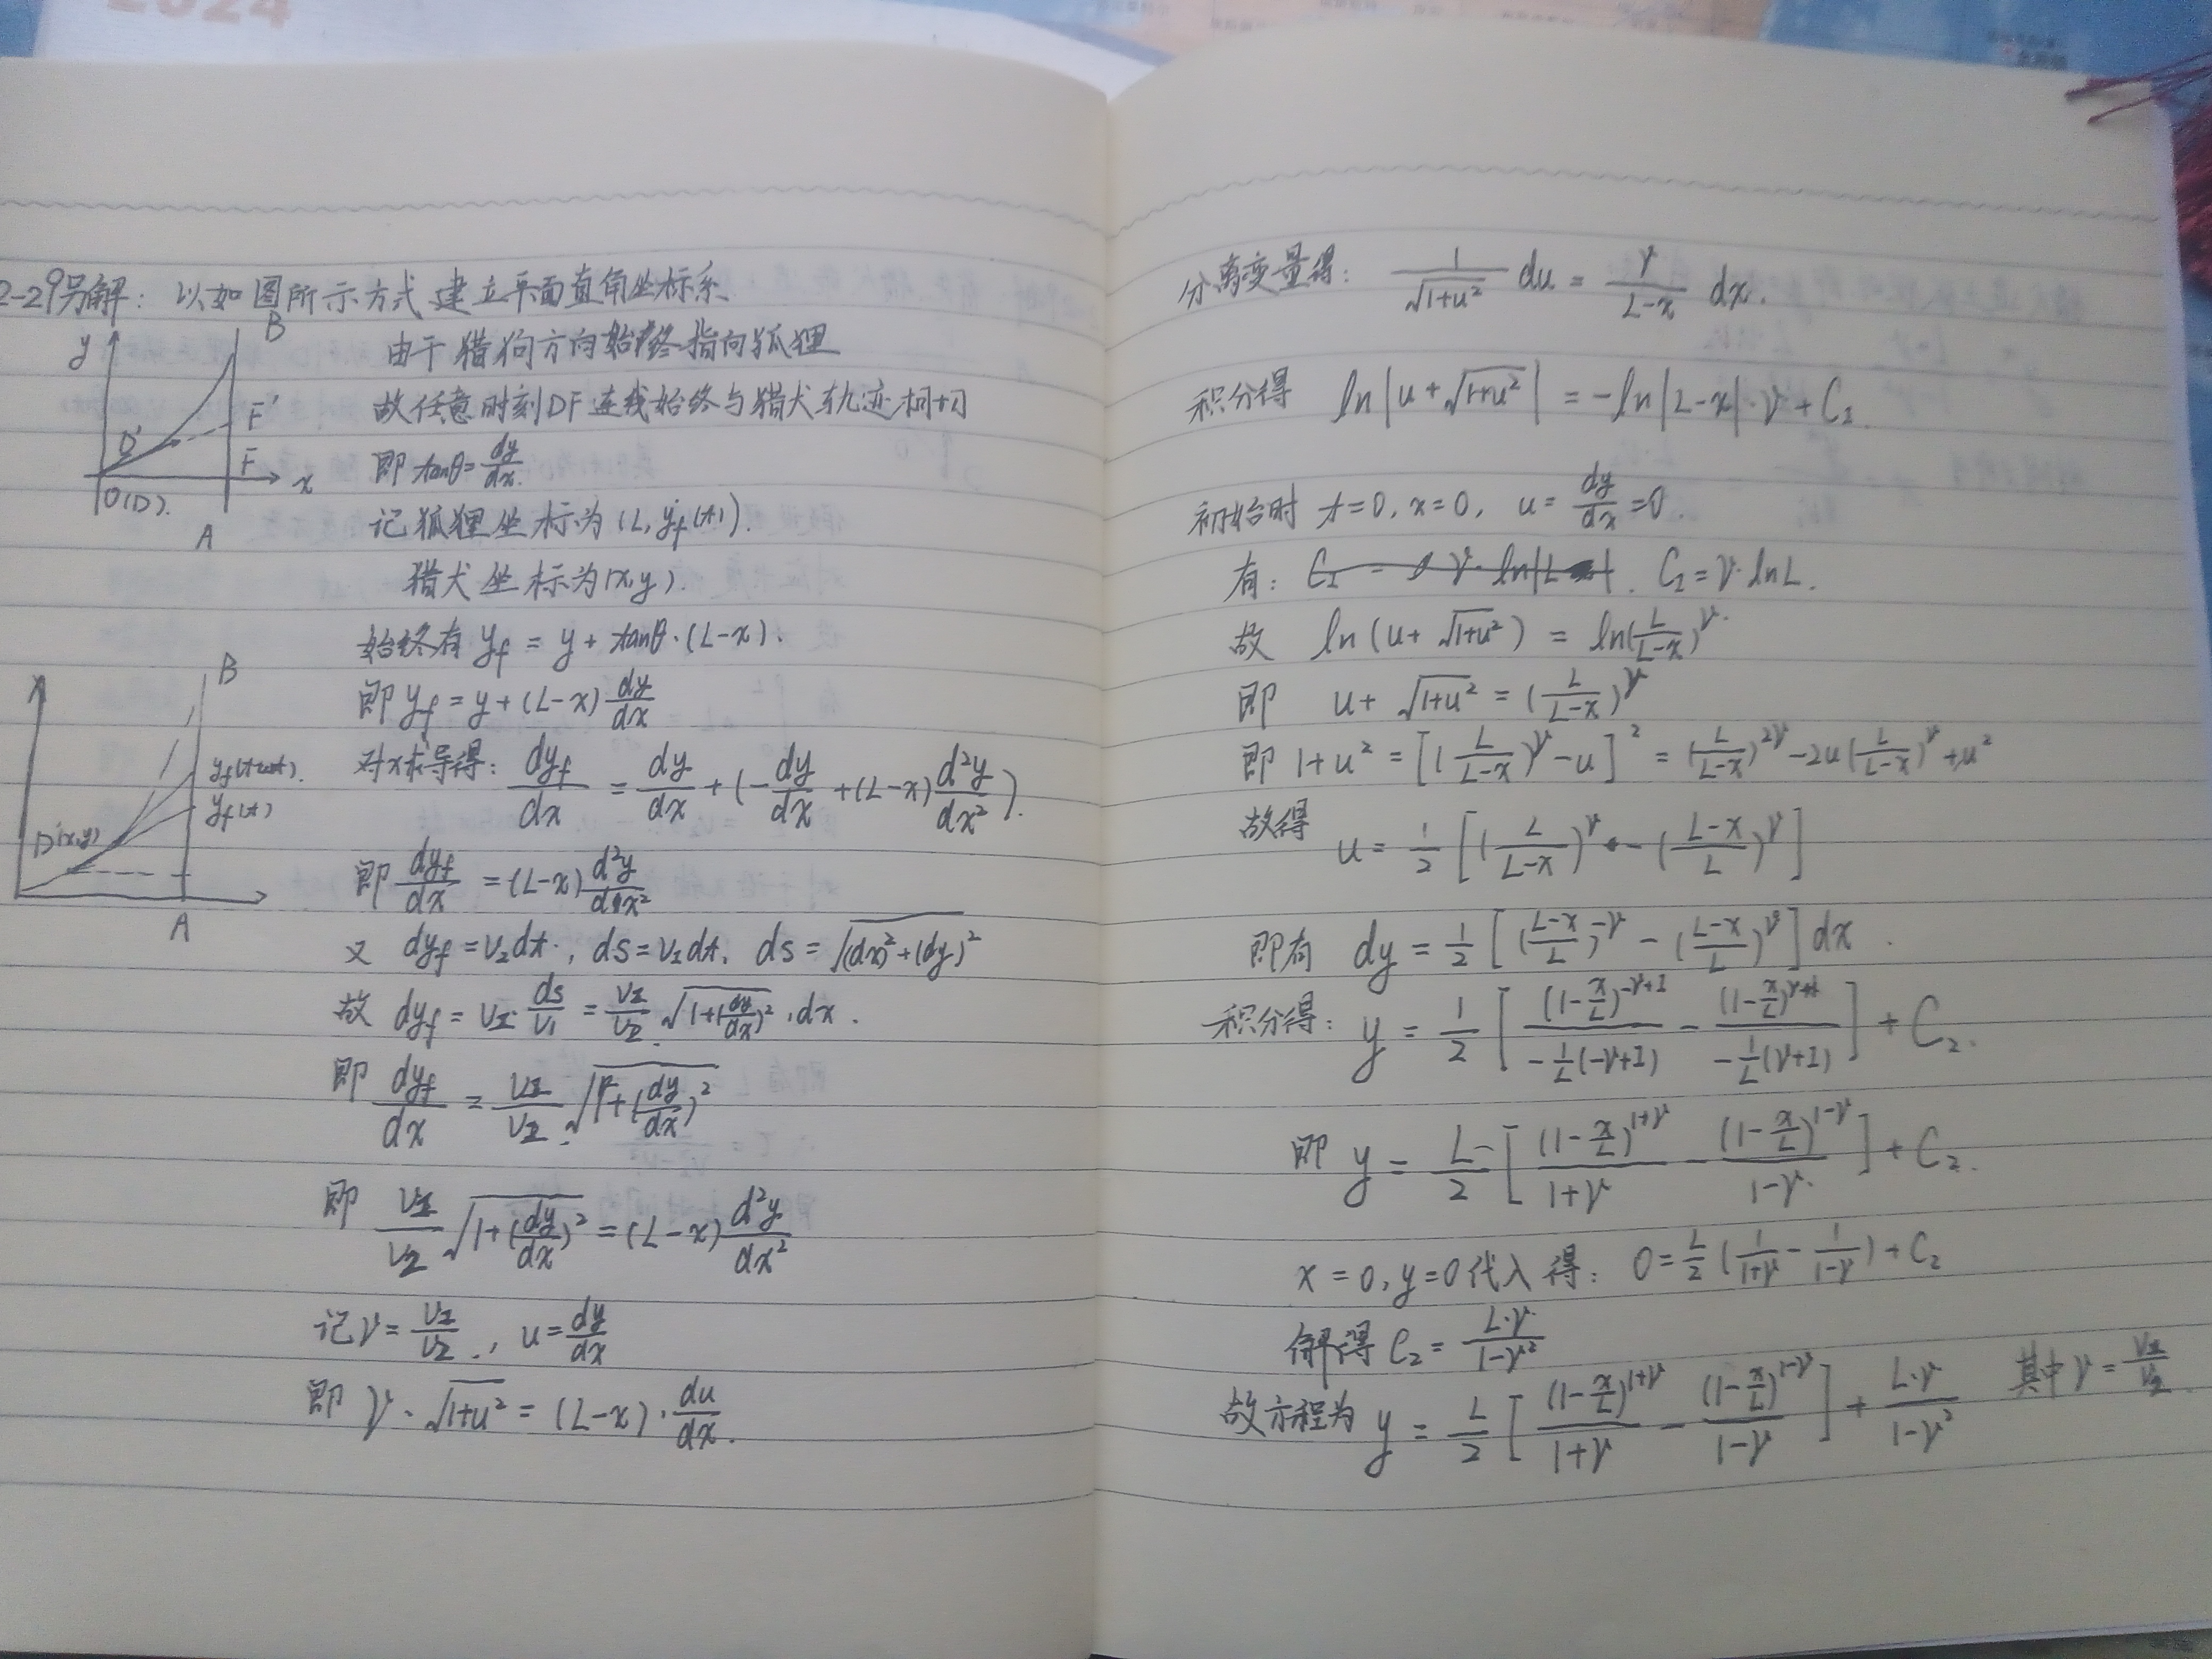 2024
2-29另解：以如图所示方式建立平面直角坐标系
由于猎狗方向始终指向狐狸
故任意时刻DF连线始终与猎犬轨迹相切
即 tanθ = dy/dx.
记狐狸坐标为(L, y_f(t)).
猎犬坐标为(x,y).
始终有 y_f = y + tanθ·(L-x).
即 y_f = y + (L-x) dy/dx
对x求导得: dy_f/dx = dy/dx + (-dy/dx + (L-x) d²y/dx²).
即 dy_f/dx = (L-x) d²y/dx²
又 dy_f = v₂dt, ds = v₁dt, ds = √((dx)²+(dy)²)
故 dy_f = v₁· ds/v₁ = v₁/v₂ √(1+(dy/dx)²) · dx.
即 dy_f/dx = v₁/v₂ √(1+(dy/dx)²)
即 v₁/v₂ √(1+(dy/dx)²) = (L-x) d²y/dx²
记 γ = v₁/v₂, u = dy/dx
即 γ·√(1+u²) = (L-x)· du/dx.
y
B
F'
D'
F
x
O(D).
A
B
y_f(t+dt).
y_f(t)
D'(x,y)
A
分离变量得: 1/√(1+u²) du = γ/(L-x) dx.
积分得 ln|u+√(1+u²)| = -ln|L-x|·γ + C₁.
初始时 t=0, x=0, u = dy/dx = 0.
有: C₁ = γ·lnL.
故 ln(u+√(1+u²)) = ln(L/(L-x))^γ.
即 u+√(1+u²) = (L/(L-x))^γ
即 1+u² = [(L/(L-x))^γ - u]² = (L/(L-x))^2γ - 2u(L/(L-x))^γ + u²
故得 u = 1/2 [(L/(L-x))^γ - ((L-x)/L)^γ]
即有 dy = 1/2 [((L-x)/L)^-γ - ((L-x)/L)^γ] dx.
积分得: y = 1/2 [(1-x/L)^(-γ+1) / (-1/L(-γ+1)) - (1-x/L)^(γ+1) / (-1/L(γ+1))] + C₂.
即 y = L/2 [(1-x/L)^(1+γ) / (1+γ) - (1-x/L)^(1-γ) / (1-γ)] + C₂.
x=0, y=0代入得: 0 = L/2 (1/(1+γ) - 1/(1-γ)) + C₂
解得 C₂ = L·γ/(1-γ²)
故方程为 y = L/2 [(1-x/L)^(1+γ) / (1+γ) - (1-x/L)^(1-γ) / (1-γ)] + L·γ/(1-γ²) 其中 γ = v₁/v₂